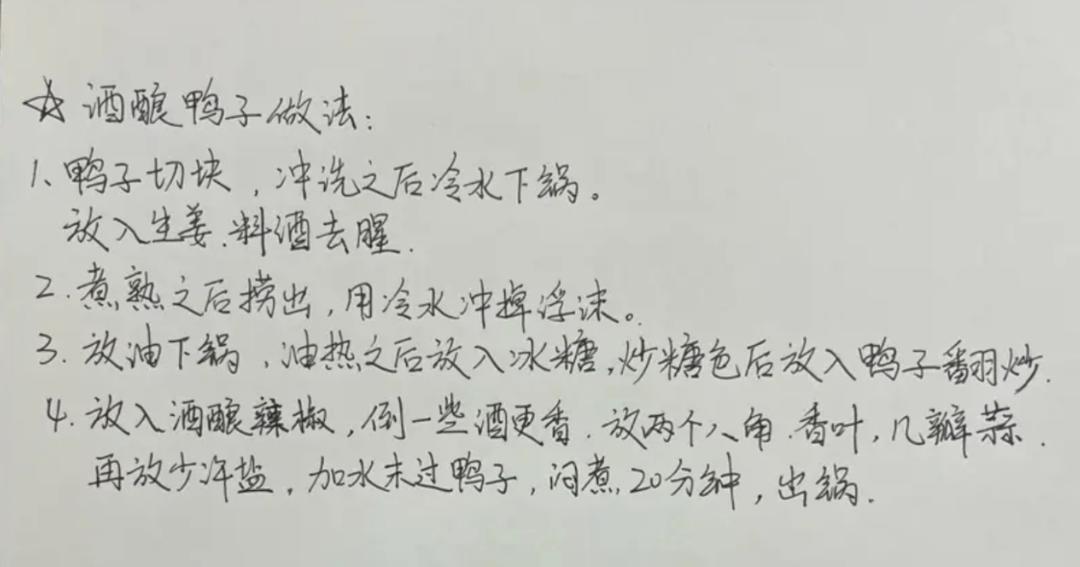 ☆ 酒酿鸭子做法：
1、鸭子切块，冲洗之后冷水下锅。
放入生姜、料酒去腥.
2. 煮熟之后捞出，用冷水冲掉浮沫。
3. 放油下锅，油热之后放入冰糖，炒糖色后放入鸭子翻炒.
4. 放入酒酿辣椒，倒一些酒更香. 放两个八角.香叶，几瓣蒜.
再放少许盐，加水末过鸭子，闷煮20分钟，出锅.